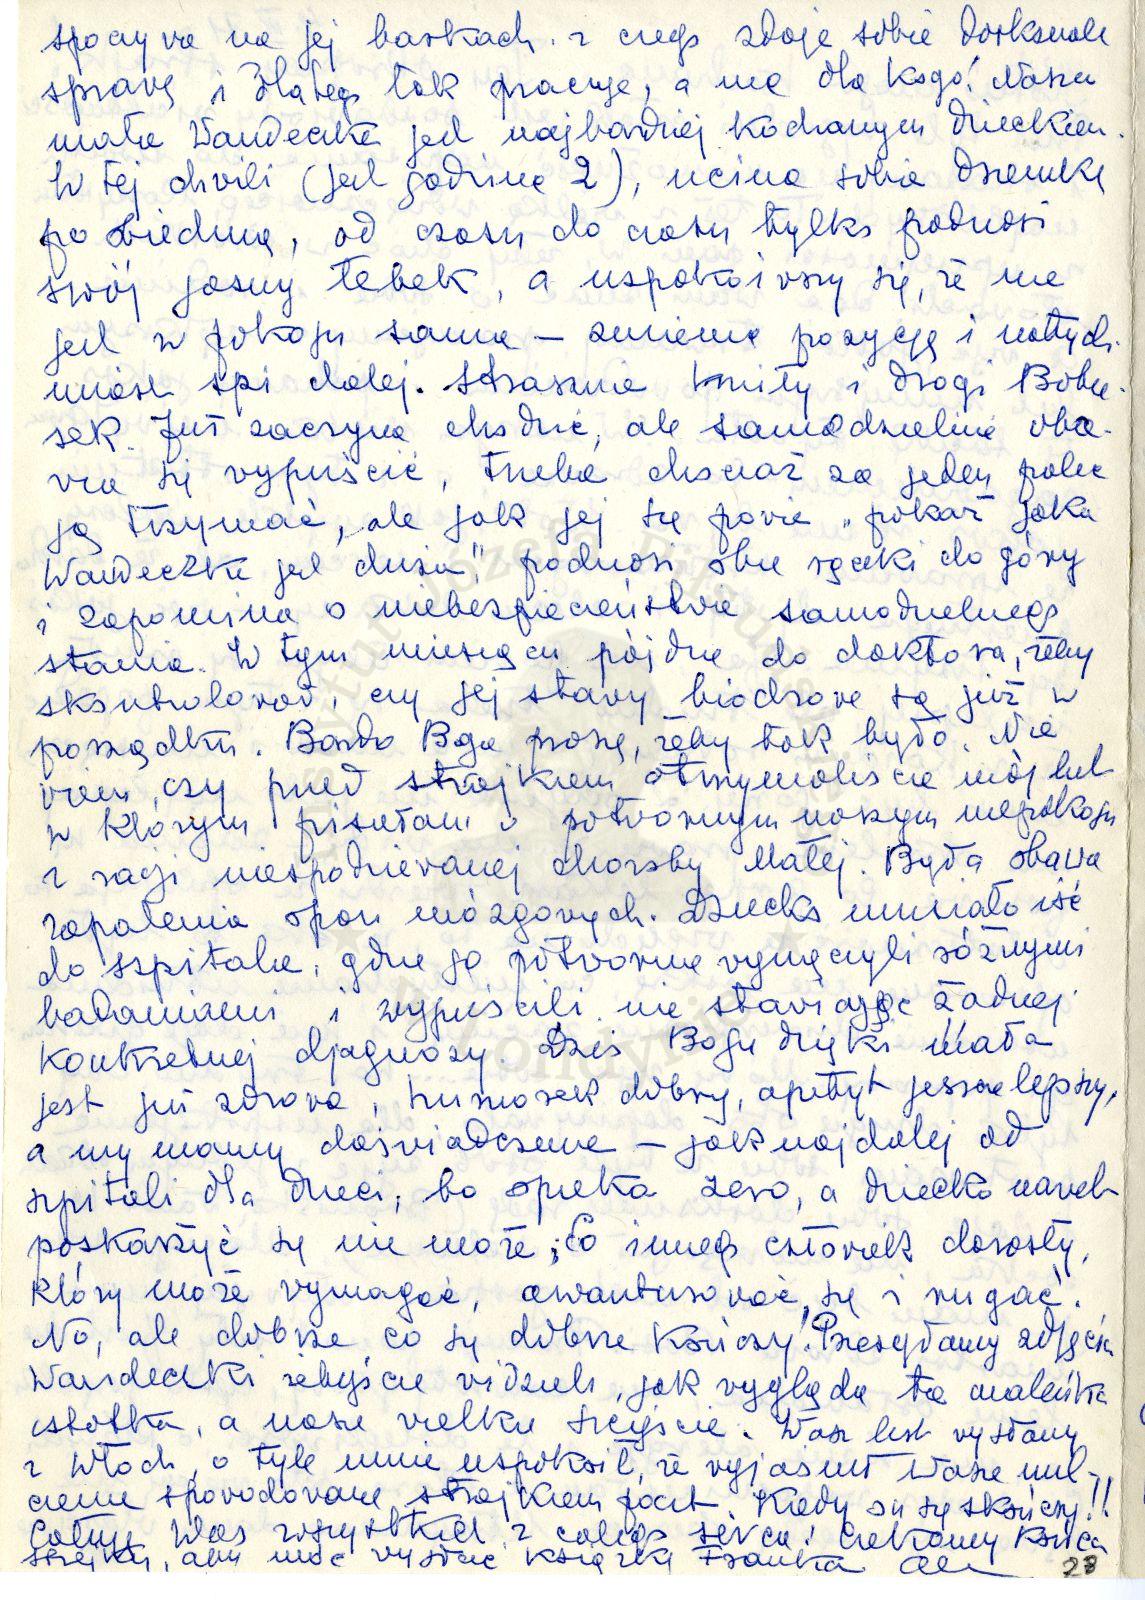 spoczywa na jej barkach. z czego zdaje sobie doskonale
sprawę i dlatego tak pracuje, a nie dla kogo! Nasza
mała Wandeczka jest najbardziej kochanym dzieckiem.
W tej chwili (jest godzina 2), ucina sobie drzemkę
poobiednią, od czasu do czasu tylko podnosi
swój jasny łebek, a uspokoiwszy się, że nie
jest w pokoju sama — zmienia pozycję i natych-
miast śpi dalej. Strasznie miły i drogi Bobu-
sek. Już zaczyna chodzić, ale samodzielnie oba-
wia się wypuścić, trzeba chociaż za jeden palec
ją trzymać, ale jak jej się powie „pokaż jaka
Wandeczka jest duża", podnosi obie rączki do góry
i zapomina o niebezpieczeństwie samodzielnego
stania. W tym miesiącu pójdę do doktora, żeby
skontrolował, czy jej stawy biodrowe są już w
porządku. Bardzo Boga proszę, żeby tak było. Nie
wiem, czy przed strajkiem otrzymaliście mój list
w którym pisałam o potwornym naszym niepokoju
z racji niespodziewanej choroby Małej. Była obawa
zapalenia opon mózgowych. Dziecko musiało iść
do szpitala, gdzie ją potwornie wymęczyli różnymi
badaniami i wypuścili nie stawiając żadnej
konkretnej djagnozy. Dziś Bogu dzięki mała
jest już zdrowa, humorek dobry, apetyt jeszcze lepszy,
a my mamy doświadczenie — jak najdalej od
szpitali dla dzieci, bo opieka zero, a dziecko nawet
poskarżyć się nie może; Co innego człowiek dorosły,
który może wymagać, awanturować się i rugać.
No, ale dobrze co się dobrze kończy! Przesyłamy zdjęcia
Wandeczki żebyście widzieli, jak wygląda ta maleńka
istotka, a nasze wielkie szczęście. Wasz list wysłany
z Włoch, o tyle mnie uspokoił, że wyjaśnił Wasze mil-
czenie spowodowane strajkiem poczt. Kiedy on się skończy!!
Całuję Was wszystkich z całego serca i czekamy końca
strajku, aby móc wysłać książkę Franka
28